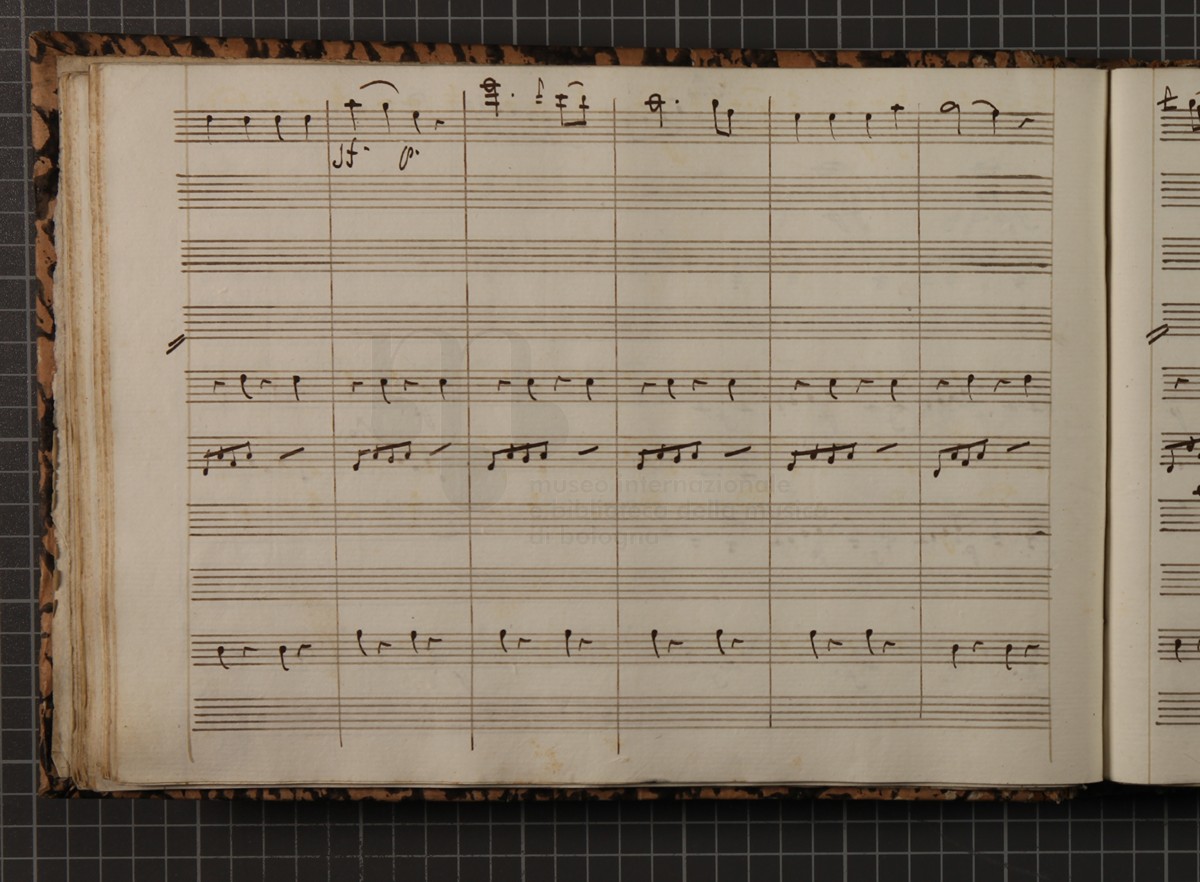 sf. p.
museo internazionale
e biblioteca della musica
di bologna